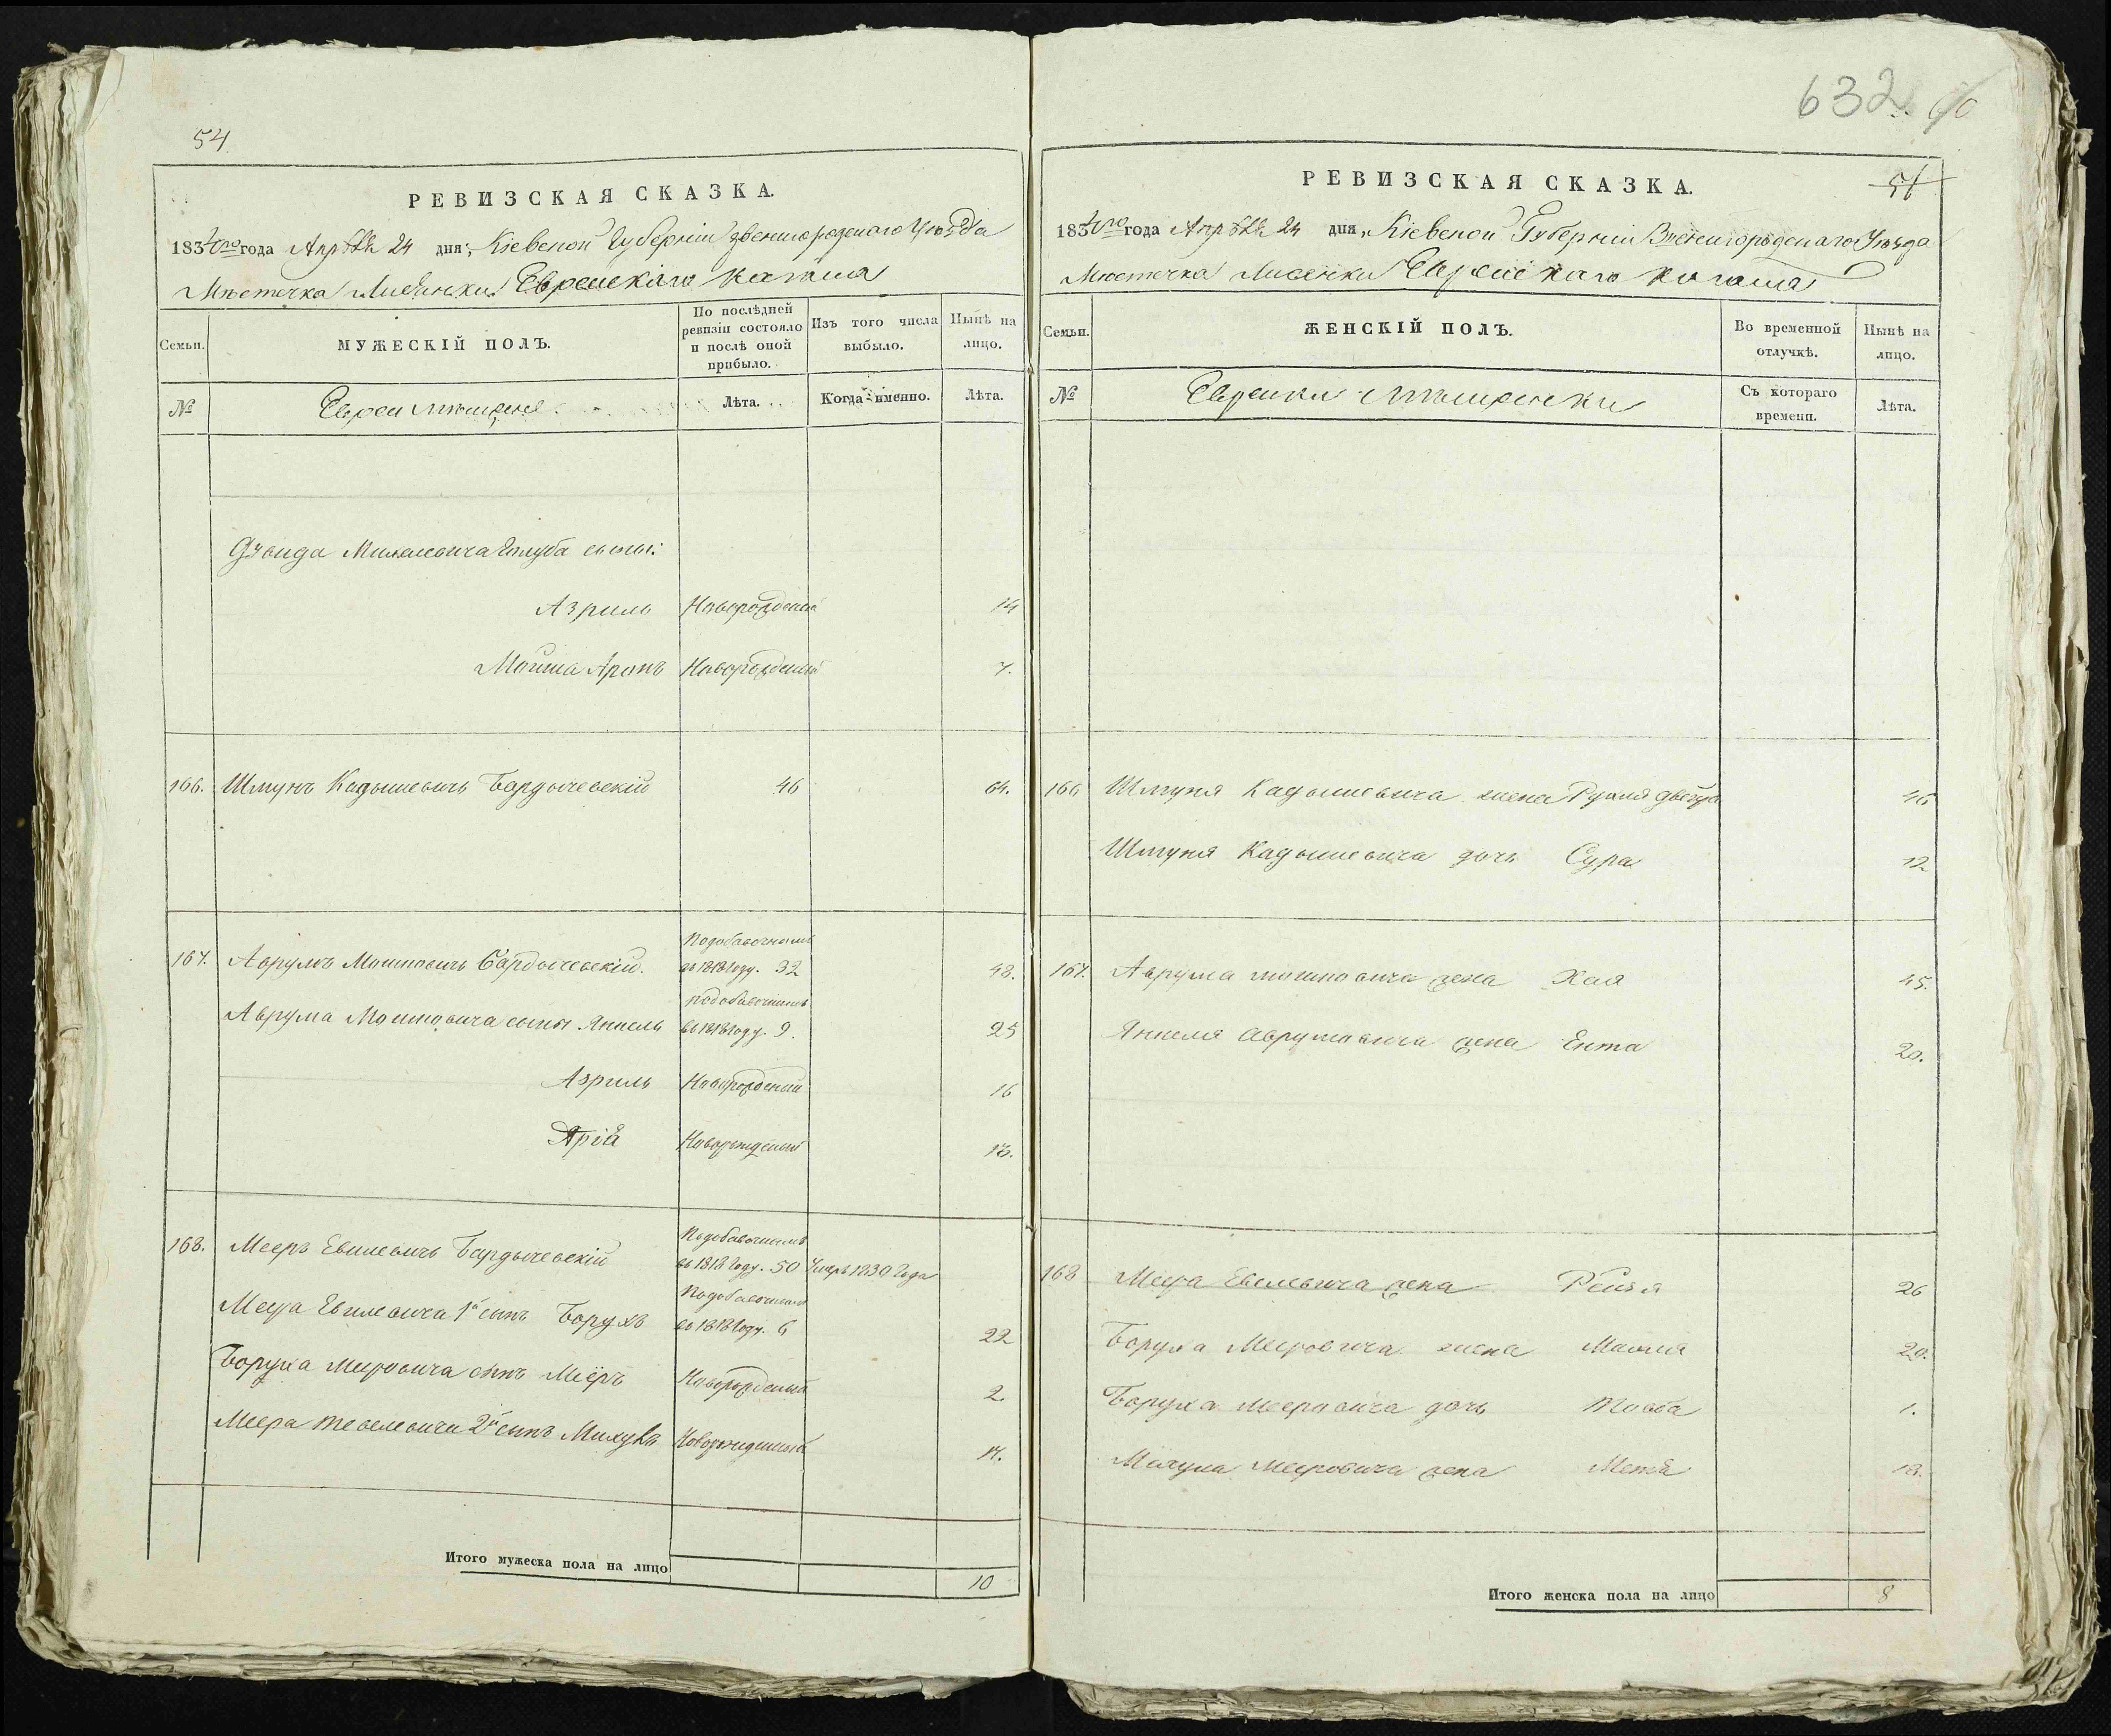 54
РЕВИЗСКАЯ СКАЗКА.
1834го года Апрѣля 24 дня, Кіевской Губерніи Звенигородскаго Уѣзда
Мѣстечка Лисянки Еврейскаго Кагала
Семьи.
МУЖЕСКІЙ ПОЛЪ.
По послѣдней ревизіи состояло и послѣ оной прибыло.
Изъ того числа выбыло.
Нынѣ на лицо.
№
Евреи мѣщане
Лѣта.
Когда именно.
Лѣта.
сыны:
Азриль Новорожденный 14
Мойша Аронъ Новорожденный 7.
166. Шмунъ Кадишевичъ Бардычевскій 46 64.
167. Аврумъ Мошковичъ Бардычевскій. Подобавочнымъ въ 1818 году. 32 48.
Аврума Мошковича сыны Янкель подобавочнымъ въ 1818 году. 9. 25
Азриль Новорожденный 16
Арія Новорожденный 13.
168. Мееръ Евилевичъ Бардычевскій Подобавочнымъ въ 1818 году. 50 Умеръ 1830 года
Меера Евилевича 1й сынъ Борухъ Подобавочнымъ въ 1818 году. 6 22
Боруха Мееровича сынъ Мееръ Новорожденный 2.
Меера 2й сынъ Новорожденный
Итого мужеска пола на лицо 10
632.
РЕВИЗСКАЯ СКАЗКА.
1834го года Апрѣля 24 дня, Кіевской Губерніи Звенигородскаго Уѣзда
Мѣстечка Лисянки Еврейскаго Кагала
Семьи.
ЖЕНСКІЙ ПОЛЪ.
Во временной отлучкѣ.
Нынѣ на лицо.
№
Еврейки Мѣщанки
Съ котораго времени.
Лѣта.
166 Шмуня Кадишевича жена Рухля двейра 46
Шмуня Кадишевича дочь Сура 12
167. Аврума мошковича жена Хая 45.
Янкеля Аврумовича жена Ента 20.
168 Меера Евелевича жена Рейзя 26
Боруха Мееровича жена 20.
Боруха Мееровича дочь 1.
Мееровича жена
Итого женска пола на лицо 8